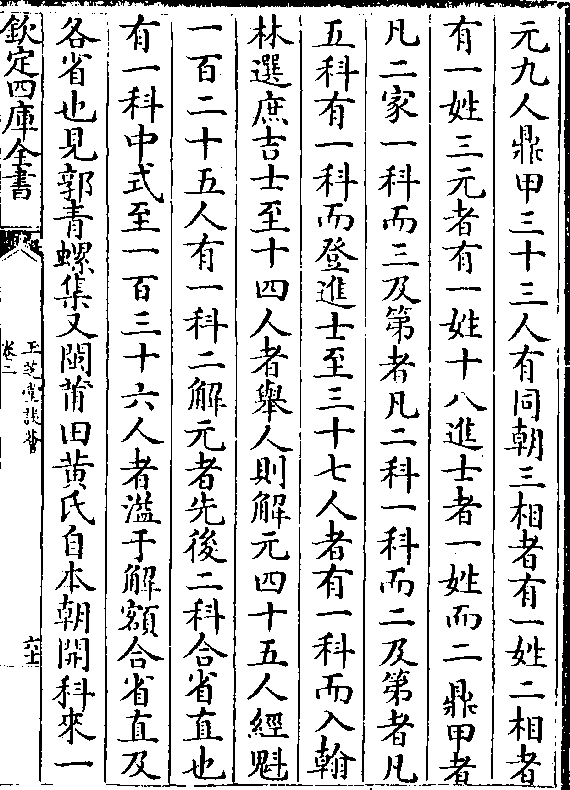 元九人鼎甲三十三人有同朝三相者有一姓二相者
有一姓三元者有一姓十八進士者一姓而二鼎甲者
凡二家一科而三及第者凡二科一科而二及第者凡
五科有一科而登進士至三十七人者有一科而入翰
林選庶吉士至十四人者舉人則解元四十五人經魁
一百二十五人有一科二解元者先後二科合省直也
有一科中式至一百三十六人者溢于解額合省直及
各省也見郭青螺集又閩莆田黄氏自本朝開科來一
欽定四庫全書
玉芝堂談薈
卷二